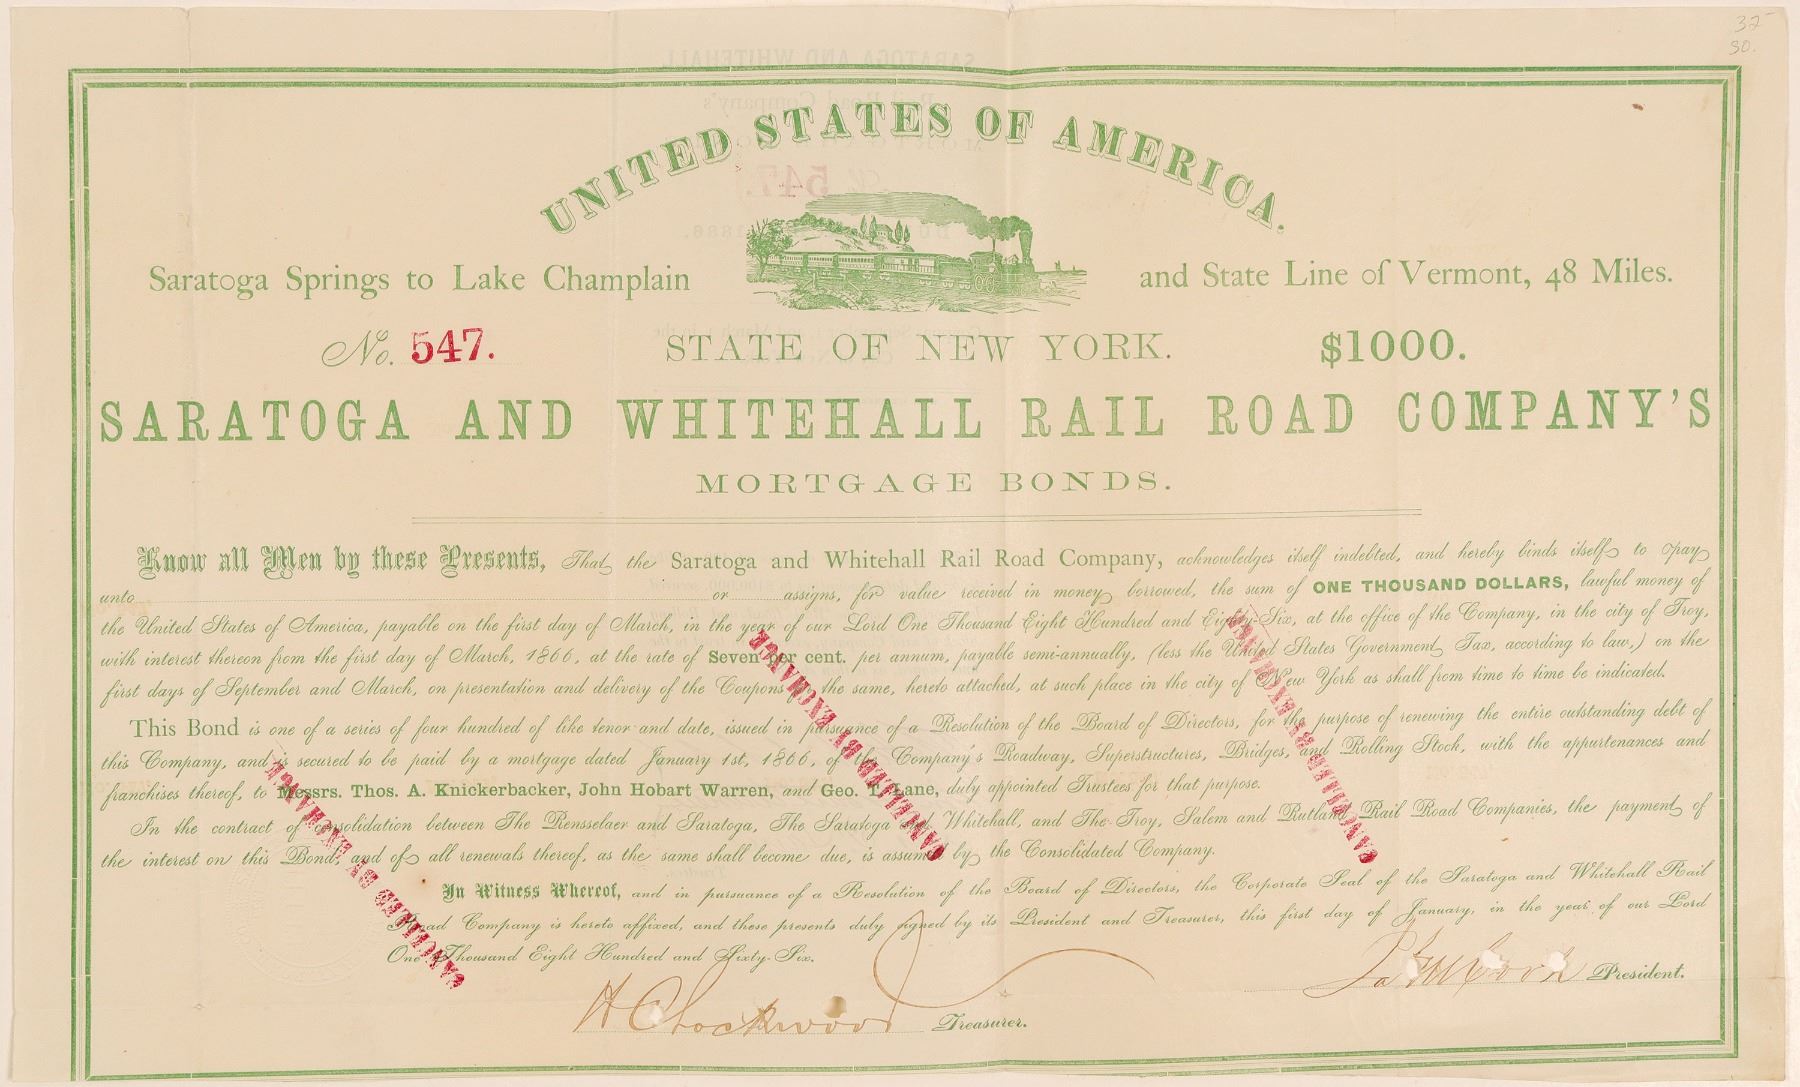 37
30.
UNITED STATES OF AMERICA.
Saratoga Springs to Lake Champlain and State Line of Vermont, 48 Miles.
No. 547. STATE OF NEW YORK. $1000.
SARATOGA AND WHITEHALL RAIL ROAD COMPANY'S
MORTGAGE BONDS.
Know all Men by these Presents, That the Saratoga and Whitehall Rail Road Company, acknowledges itself indebted, and hereby binds itself to pay
unto or assigns, for value received in money borrowed, the sum of ONE THOUSAND DOLLARS, lawful money of
the United States of America, payable on the first day of March, in the year of our Lord One Thousand Eight Hundred and Eighty-Six, at the office of the Company, in the city of Troy,
with interest thereon from the first day of March, 1866, at the rate of Seven per cent. per annum, payable semi-annually, (less the United States Government Tax, according to law,) on the
first days of September and March, on presentation and delivery of the Coupons for the same, hereto attached, at such place in the city of New York as shall from time to time be indicated.
This Bond is one of a series of four hundred of like tenor and date, issued in pursuance of a Resolution of the Board of Directors, for the purpose of renewing the entire outstanding debt of
this Company, and is secured to be paid by a mortgage dated January 1st, 1866, of the Company's Roadway, Superstructures, Bridges, and Rolling Stock, with the appurtenances and
franchises thereof, to Messrs. Thos. A. Knickerbacker, John Hobart Warren, and Geo. T. Lane, duly appointed Trustees for that purpose.
In the contract of consolidation between The Rensselaer and Saratoga, The Saratoga and Whitehall, and The Troy, Salem and Rutland Rail Road Companies, the payment of
the interest on this Bond, and of all renewals thereof, as the same shall become due, is assumed by the Consolidated Company.
In Witness Whereof, and in pursuance of a Resolution of the Board of Directors, the Corporate Seal of the Saratoga and Whitehall Rail
Road Company is hereto affixed, and these presents duly signed by its President and Treasurer, this first day of January, in the year of our Lord
One Thousand Eight Hundred and Sixty-Six.
CANCELLED BY EXCHANGE
CANCELLED BY EXCHANGE
CANCELLED BY EXCHANGE
President.
H C Lockwood Treasurer.